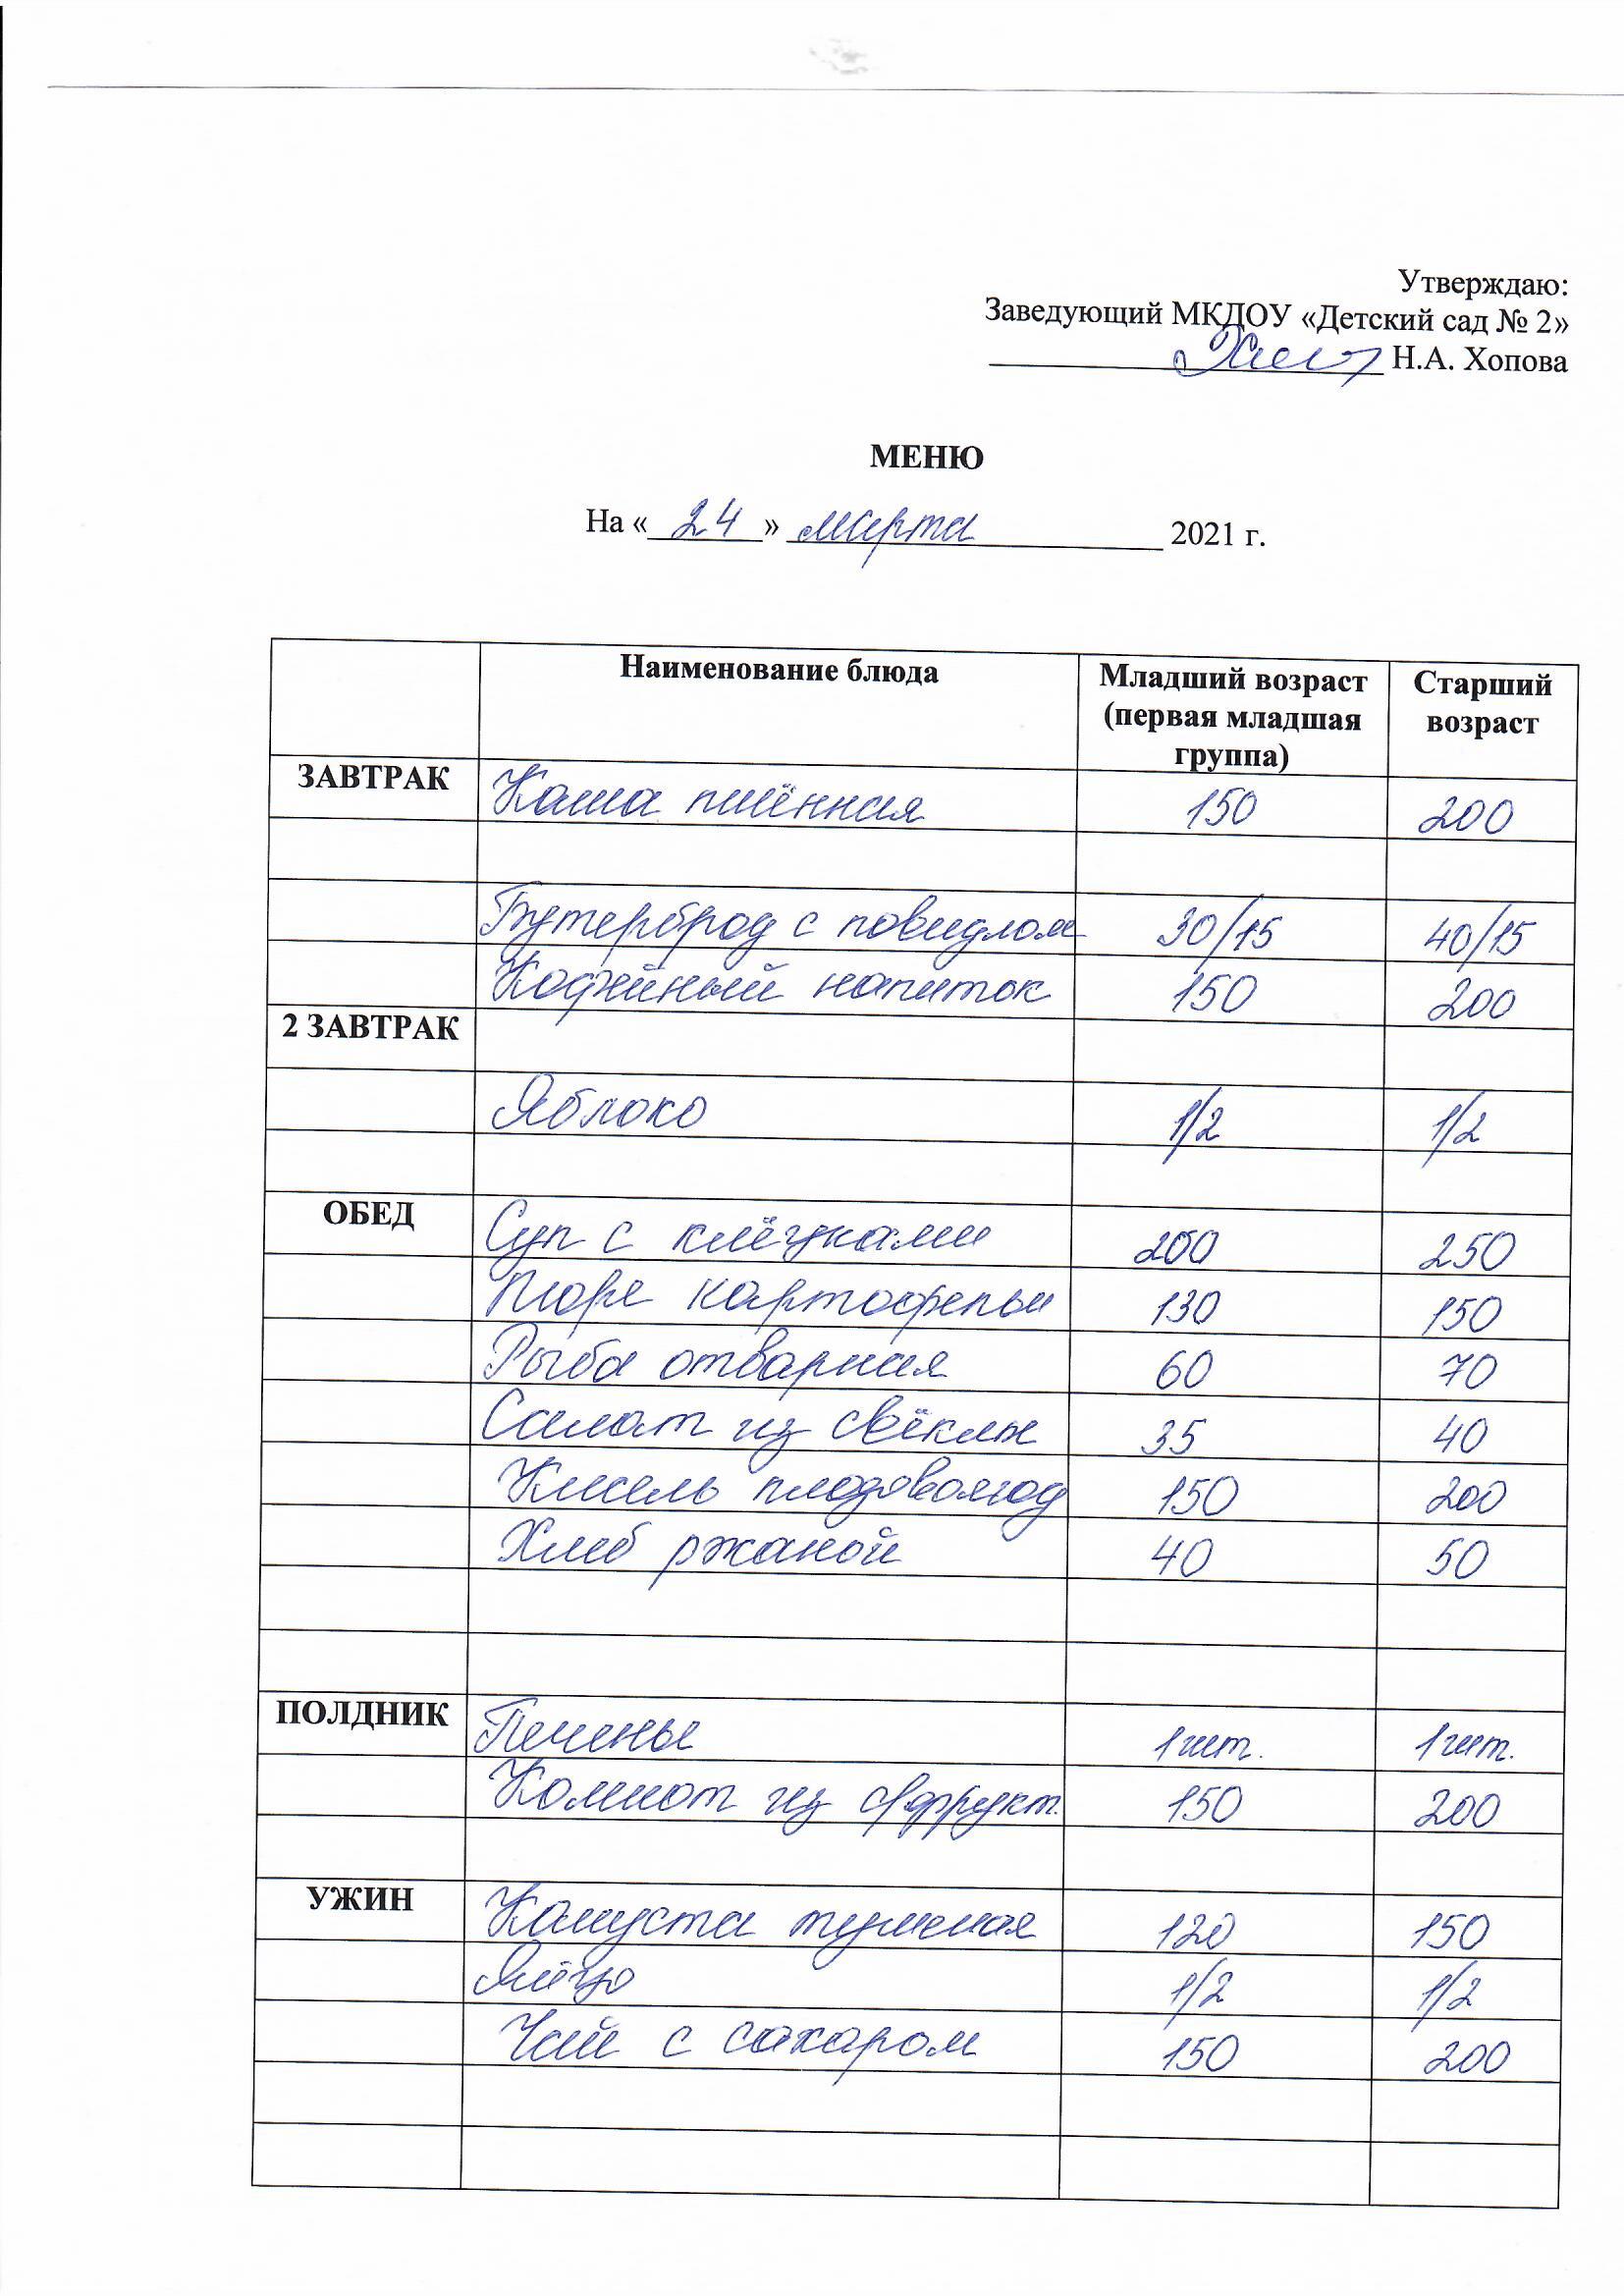 Утверждаю:
Заведующий МКДОУ «Детский сад № 2»
Н.А. Хопова
МЕНЮ
На «24» марта 2021 г.
Наименование блюда Младший возраст (первая младшая группа) Старший возраст
ЗАВТРАК Каша пшённая 150 200
Бутерброд с повидлом 30/15 40/15
Кофейный напиток 150 200
2 ЗАВТРАК
Яблоко 1/2 1/2
ОБЕД Суп с клёцками 200 250
Пюре картофельн 130 150
Рыба отварная 60 70
Салат из свёклы 35 40
Кисель плодовоягод 150 200
Хлеб ржаной 40 50
ПОЛДНИК Печенье 1шт. 1шт.
Компот из с/фрукт. 150 200
УЖИН Капуста тушеная 120 150
Яйцо 1/2 1/2
Чай с сахаром 150 200